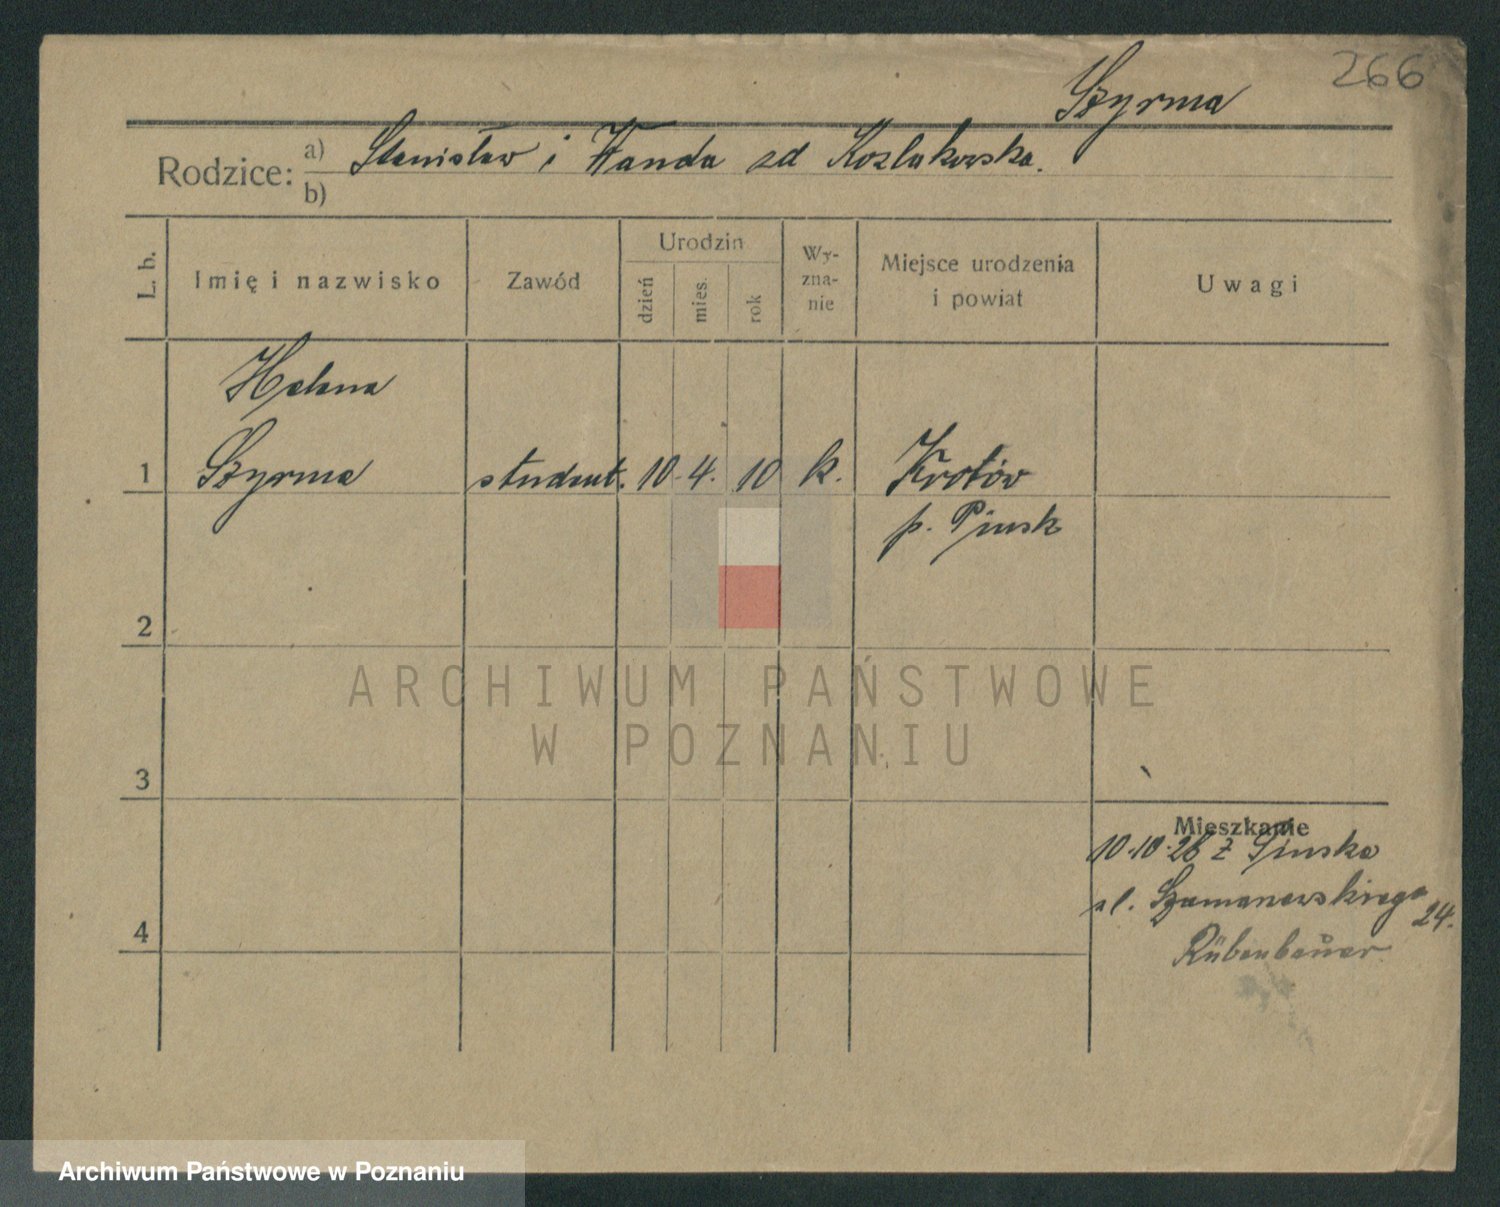 266
Szyrma
Rodzice: a) Stanisław i Wanda zd Kozlakowska.
b)
L. b.
Imię i nazwisko
Zawód
Urodzin
dzień
mies.
rok
Wy-
zna-
nie
Miejsce urodzenia
i powiat
Uwagi
Helena
1 Szyrma student. 10. 4. 10 k. Krotów
p. Pinsk
2
ARCHIWUM PAŃSTWOWE
W POZNANIU
3
Mieszkanie
10.10.28 z Pinska
ul. Szamarzewskiego
24.
4
Rübenbauer
Archiwum Państwowe w Poznaniu